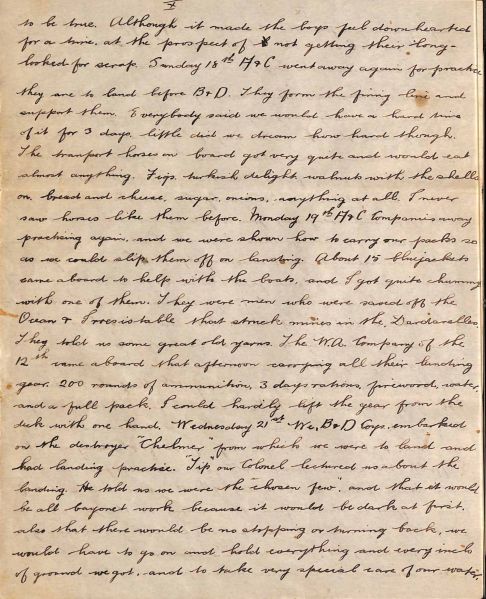 to be true. Although it made the boys feel down hearted
for a time, at the prospect of not getting their long-
looked for scrap. Sunday 18th A & C went away again for practice
they are to land before B & D. They form the firing line and
support them. Everybody said we would have a hard time
of it for 3 days, little did we dream how hard though.
The tranport horses on board got very quite and would eat
almost anything. Figs, turkish delight, walnuts with the shells
on, bread and cheese, sugar, onions, anything at all. I never
saw horses like them before. Monday 19th A & C Companies away
practicing again, and we were shown how to carry our packs so
as we could slip them off on landing. About 15 bluejackets
came aboard to help with the boats, and I got quite chummy
with one of them. They were men who were saved off the
Ocean & Irresistable that struck mines in the Dardanelles.
They told us some great old yarns. The W.A. Company of the
12th came aboard that afternoon carrying all their landing
gear. 200 rounds of ammunition, 3 days rations, firewood, water,
and a full pack. I could hardly lift the gear from the
deck with one hand. Wednesday 21st We, B & D Coys. embarked
on the destroyer "Chelmer" from which we were to land and
had landing practice. "Tip" our Colonel lectured us about the
landing. He told us we were the "chosen few", and that it would
be all bayonet work because it would be dark at first,
also that there would be no stopping or turning back, we
would have to go on and hold everything and every inch
of ground we got, and to take very special care of our water,